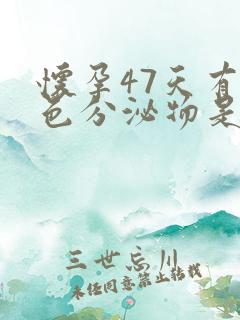 懷孕47天有
色分泌物是
三世忘川
未经同意禁止转载